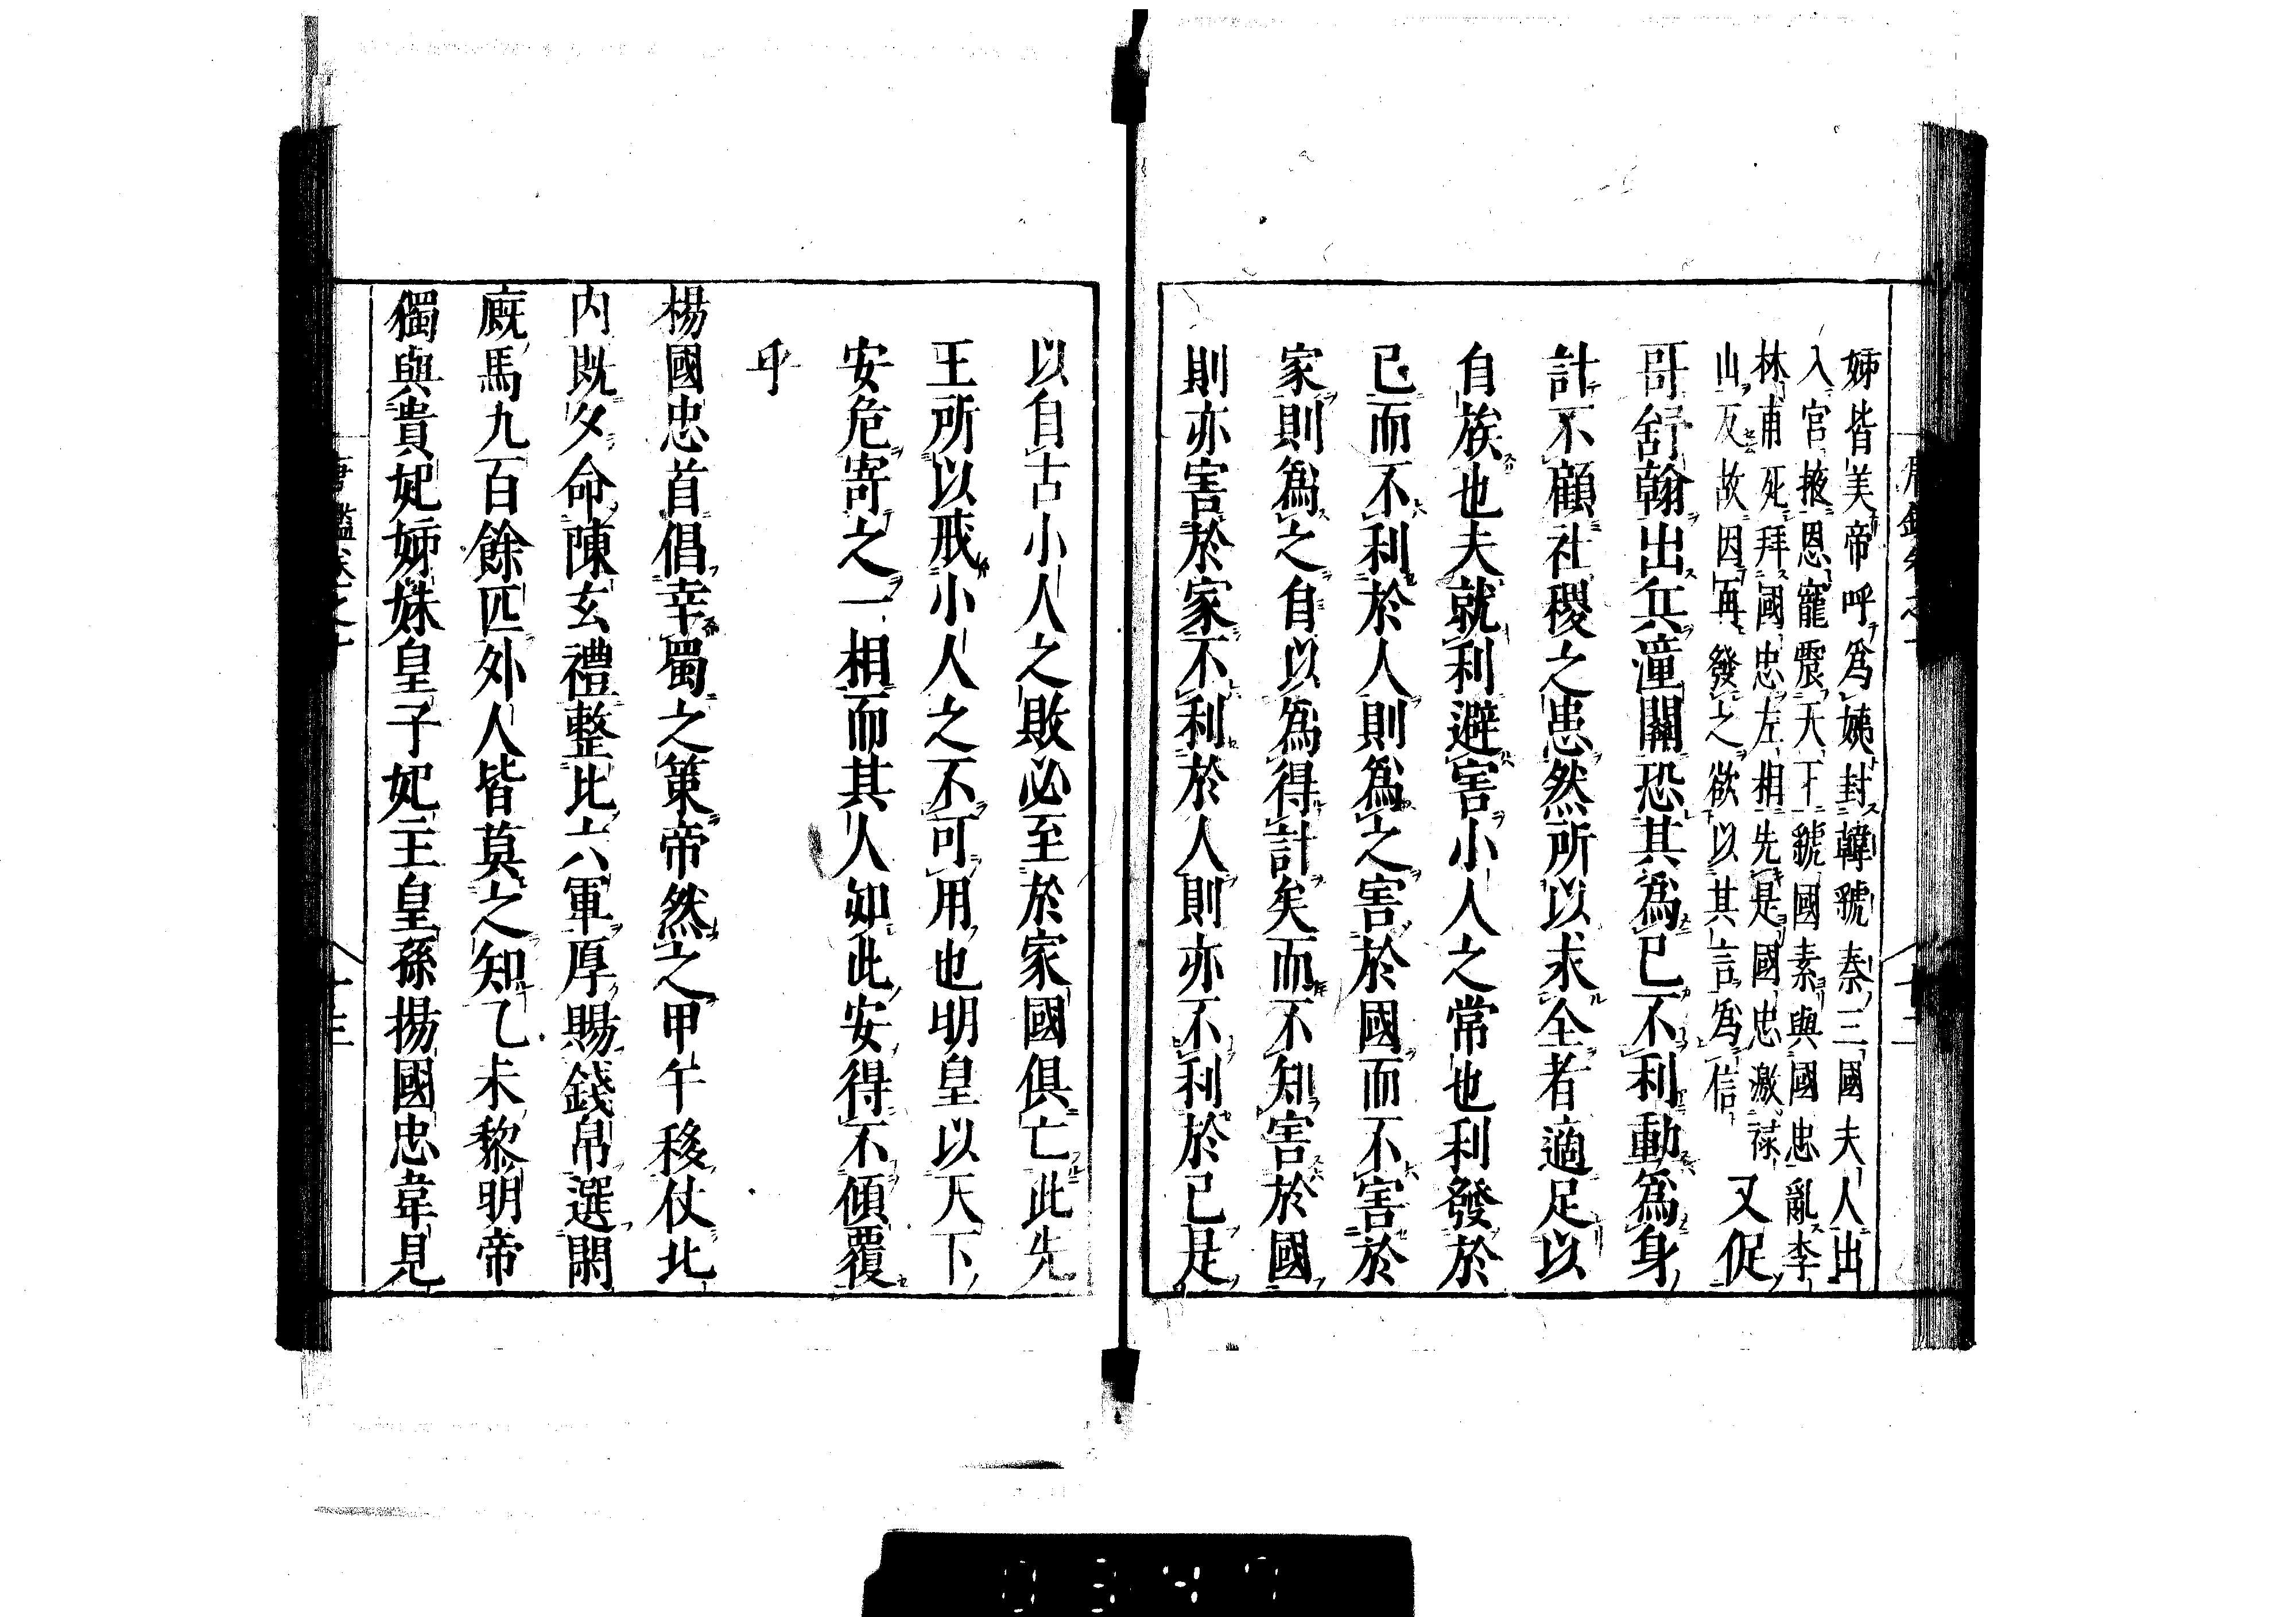 姊皆美帝呼爲姨封韓虢秦三國夫人出
入官掖恩寵震天下虢國素與國忠亂李
林甫死拜國忠左相先是國忠激祿
山反故因再發之欲以其言爲信 又促
哥舒翰出兵潼關恐其爲已不利動爲身
計不顧社稷之患然所以求全者適足以
自族也夫就利避害小人之常也利發於
已而不利於人則爲之害於國而不害於
家則爲之自以為得計矣而不知害於國
則亦害於家不利於人則亦不利於已是
以自古小人之敗必至於家國俱亡此先
王所以戒小人之不可用也明皇以天下
安危寄之一相而其人如此安得不傾覆
乎
楊國忠首倡幸蜀之策帝然之甲午移仗北
内既夕命陳玄禮整比六軍厚賜錢帛選閑
廐馬九百餘匹外人皆莫之知乙未黎明帝
獨與貴妃姊妹皇子妃主皇孫揚國忠韋見
唐鑑卷之十
十三
0347